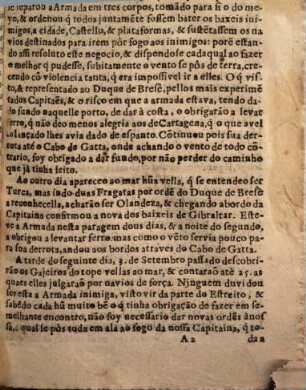 se reparou a Armada em tres corpos, tomãdo para si o do me-
yo, & ordenou q̃ todos juntamẽte fossem bater os baxeis ini-
migos, a cidade, Castello, & plataformas, & sustẽtassem os na
vios destinados para irem pôr fogo aos inimigos: porê estan-
do assi resoluto este negocio, & dispondose cada qual ao fazer
o melhor q̃ pudesse, subitamente o vento se pòs de terra, cre-
cendo cõ violencia tanta, q̃ era impossivel ir a elles. O q̃ vis-
to, & representado ao Duque de Bresè, pellos mais experimẽ
tados Capitaẽs, & o risco em que a armada estava, tendo da-
do fundo naquelle porto, de dar à costa, o obrigarão a levar
ferro, q̃ não deo menos alegria aos de Cartagena, q̃ o que avel
o lançado lhes avia dado de espanto. Cõtinuou pois sua der-
rota atè o Cabo de Gatta, onde achando o vento de todo cõ
trario, foy obrigado a dar fundo, por não perder do caminho
que já tinha feito.
Ao outro dia apareceo ao mar hũa vella, q̃ se entendeo ser
Turca, mas indo duas Fragatas por ordẽ do Duque de Bresè
a reconhecella, acharão ser Olandeza, & chegando abordo da
Capitaina confirmou a nova dos baixeis de Gibraltar. Este-
ve a Armada nesta paragem dous dias, & a noite do segundo,
a obrigou a levantar ferro: mas como o vẽto servia pouco pa-
ra sua derrota, andou aos bordos atraves do Cabo de Gatta.
A tarde do seguinte dia, 3. de Setembro passado descubri-
rão os Gajeiros do tope vellas ao mar, & contaraõ atè 25. as
quaes elles julgarão por navios de força. Ninguem duvidou
ser esta a Armada inimiga, visto vir da parte do Estreito, &
sabêdo cada hũ muito bẽ o q̃ tinha obrigação de fazer em se-
melhante encontro, não foy necessario dar novas ordẽs ános
sa, a qual se pòs toda em ala ao fogo da nossa Capitaina, q̃ to-
A 2 da a